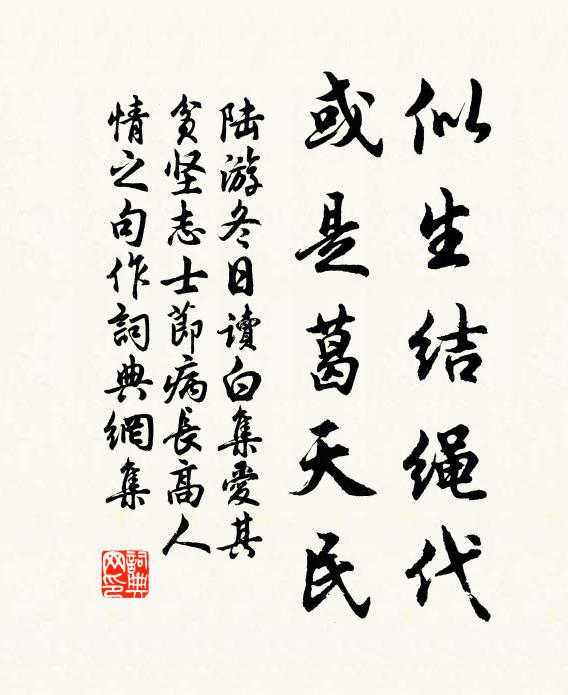 似生结绳代
或是葛天民
陆游冬日读白集爱其
贫坚志士节病长高人
情之句作詞典網集
詞典網印